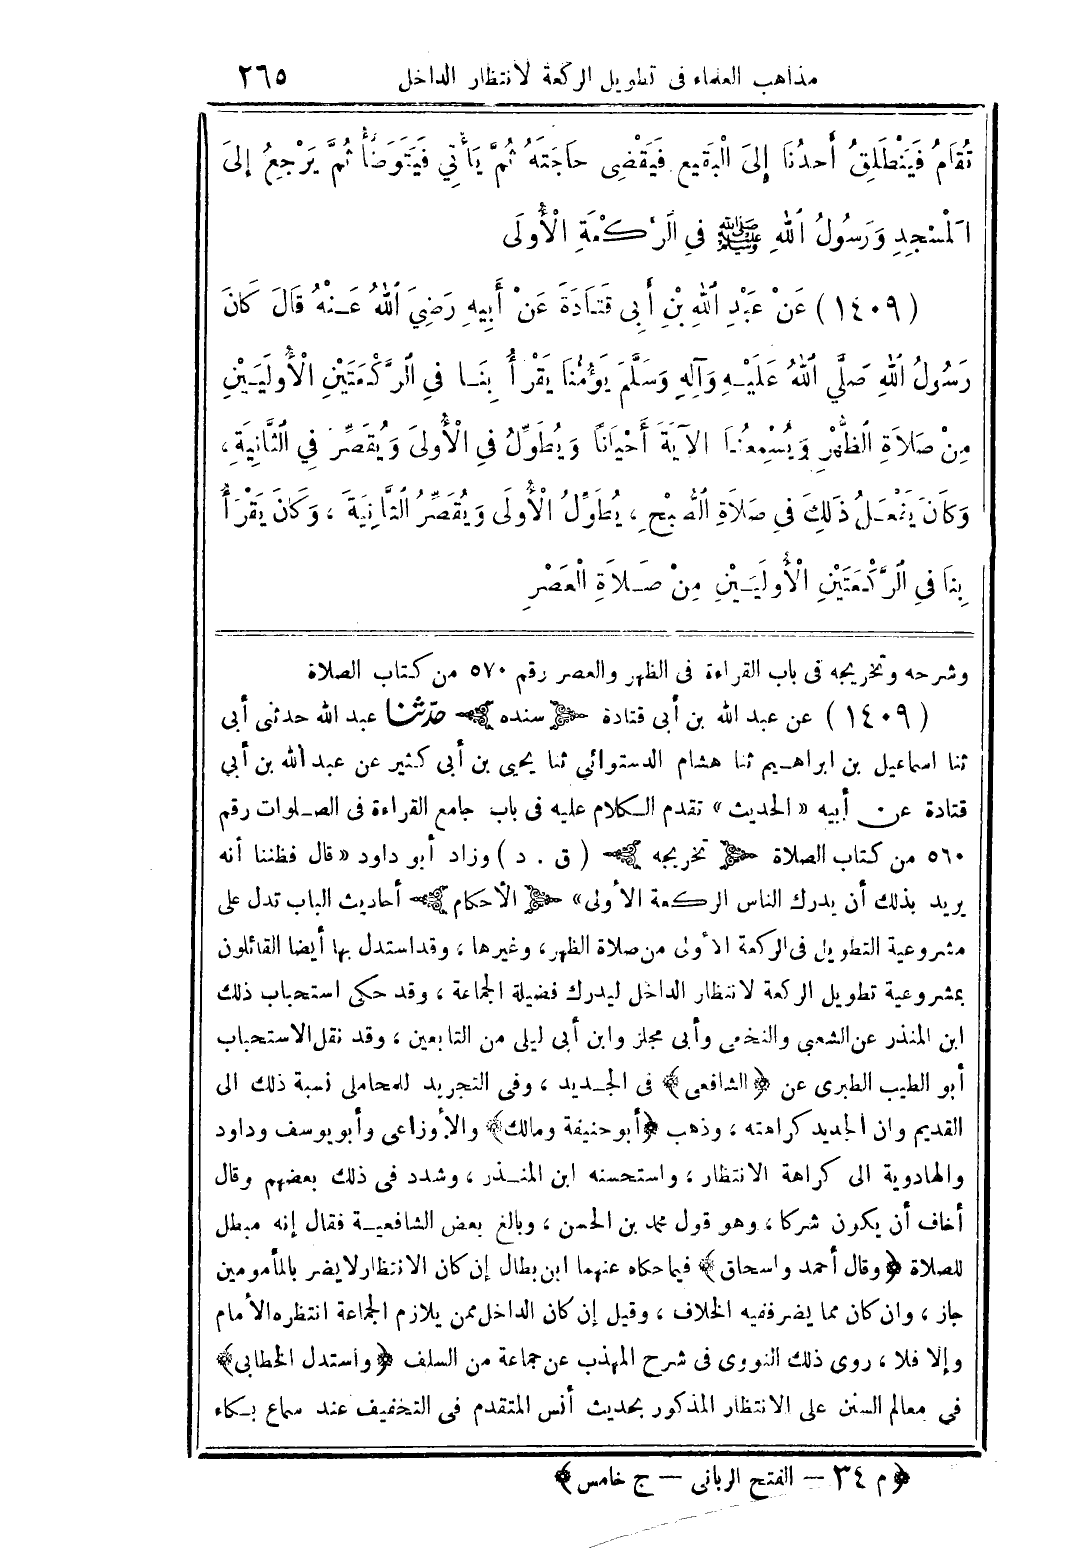 مذاهب العلماء فى تطويل الركعة لانتظار الداخل ٢٦٥
تُقَامُ فَيَنْطَلِقُ أَحدُنَا إِلىَ الْبَقيعِ فَيَقْضِى حَاجَتَهُ ثُمَّ يَأْتِي فَيَتَوَضَّأُ ثُمَّ يَرْجِعُ إِلىَ
اَلْمسْجِدِ وَرَسُولُ اللهِ ﷺ فيِ الَرَّكْعَةِ الْأُولَى
(١٤٠٩) عَنْ عَبْدِ اللهِ بْنِ أَبِى قَتَادَةَ عَنْ أَبِيهِ رَضِيَ اللهُ عَنْهُ قَالَ كَانَ
رَسُولُ اللهِ صَلَّي اللهُ عَلَيْهِ وَآلِهِ وَسَلَّمَ يَؤُمُّنَا يَقْرَأُ بِنَا فيِ الرَّكْعَتَيْنِ الْأُولَيَيْنِ
مِنْ صَلاَةِ الظُّهْرِ وَيُسْمِعُنَا الآيَةَ أَحْيَانًا وَيُطَوِّلُ فيِ الْأُولىَ وَيُقَصِّرُ فيِ الثَّانِيَةِ،
وَكَانَ يَفْعَلُ ذَلِكَ فيِ صَلاَةِ الصُّبْحِ، يُطَوِّلُ الْأُولَى وَيُقَصِّرُ الثَّانِيَةَ، وَكَانَ يَقْرَأُ
بِنَا فيِ الرَّكْعَتَيْنِ الْأُولَيَيْنِ مِنْ صَلاَةِ الْعَصْرِ
وشرحه وتخريجه فى باب القراءة فى الظهر والعصر رقم ٥٧٠ من كتاب الصلاة
(١٤٠٩) عن عبد الله بن أبى قتادة سنده حدّثنا عبد الله حدثنى أبى
ثنا اسماعيل بن ابراهيم ثنا هشام الدستوائي ثنا يحيى بن أبى كثير عن عبد الله بن أبي
قتادة عن أبيه «الحديث» تقدم الكلام عليه فى باب جامع القراءة فى الصلوات رقم
٥٦٠ من كتاب الصلاة تخريجه (ق . د) وزاد أبو داود «قال فظننا أنه
يريد بذلك أن يدرك الناس الركعة الأولى» الأحكام أحاديث الباب تدل على
مشروعية التطويل فى الركعة الأولى من صلاة الظهر، وغيرها، وقد استدل بها أيضا القائلون
بمشروعية تطويل الركعة لانتظار الداخل ليدرك فضيلة الجماعة، وقد حكى استحباب ذلك
ابن المنذر عن الشعبي والنخعى وأبى مجلز وابن أبى ليلى من التابعين، وقد نقل الاستحباب
أبو الطيب الطبرى عن ﴿الشافعى﴾ فى الجديد، وفى التجريد للمحاملى نسبة ذلك الى
القديم وان الجديد كراهته، وذهب ﴿أبو حنيفة ومالك﴾ والأوزاعى وأبو يوسف وداود
والهادوية الى كراهة الانتظار، واستحسنه ابن المنذر، وشدد فى ذلك بعضهم وقال
أخاف أن يكون شركا، وهو قول محمد بن الحسن، وبالغ بعض الشافعية فقال إنه مبطل
للصلاة ﴿وقال أحمد واسحاق﴾ فيما حكاه عنهما ابن بطال إن كان الانتظار لا يضر بالمأمومين
جاز، وان كان مما يضر ففيه الخلاف، وقيل إن كان الداخل ممن يلازم الجماعة انتظره الأمام
وإلا فلا، روى ذلك النووى فى شرح المهذب عن جماعة من السلف ﴿واستدل الخطابى﴾
في معالم السنن على الانتظار المذكور بحديث أنس المتقدم فى التخفيف عند سماع بكاء
﴿م ٣٤ — الفتح الربانى — ج خامس﴾